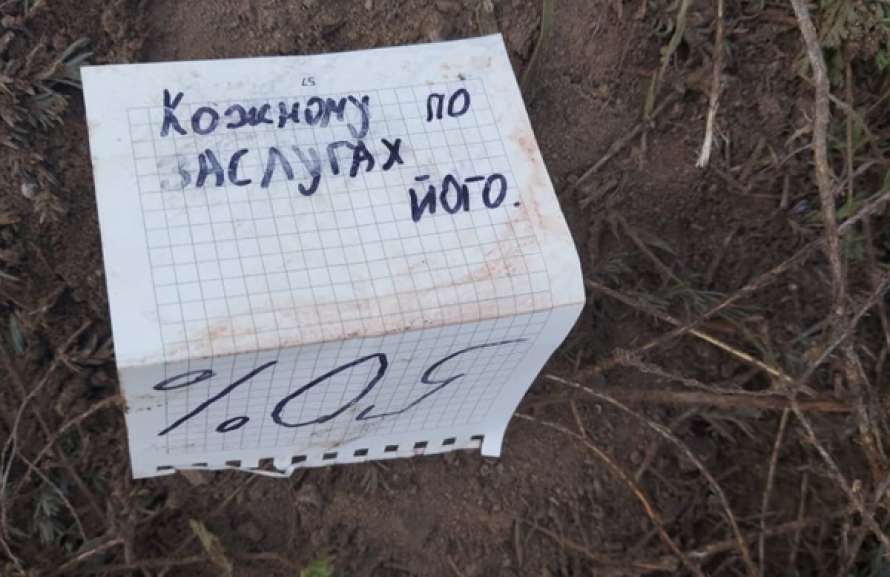 57
Кожному по
заслугах
його.
50%